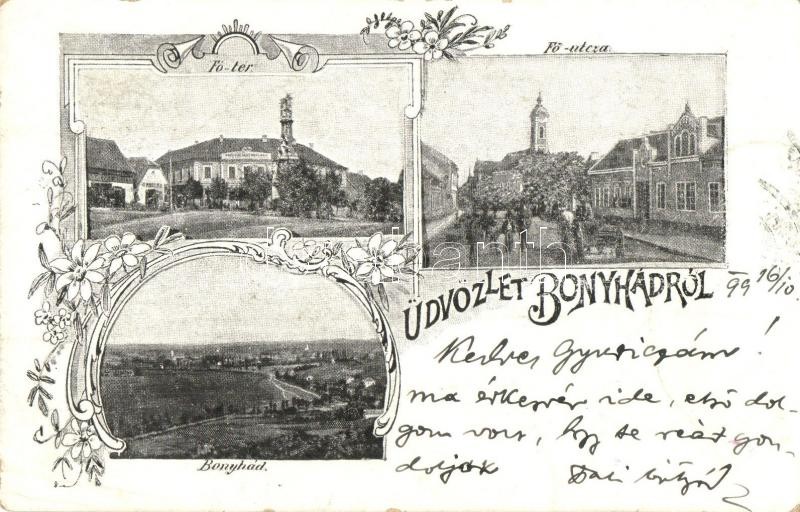 Fő-tér
Fő-utcza
ÜDVÖZLET BONYHÁDRÓL
99 16/10
Kedves Gyuriczám!
ma érkezvén ide, első dol-
gom volt, hogy te reád gon-
doljak
Bonyhád.